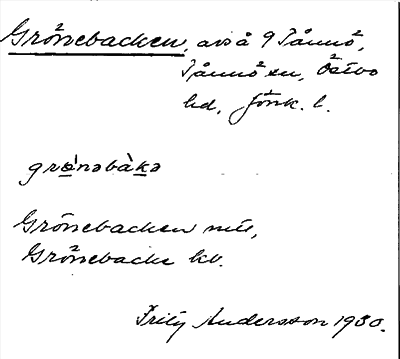 Grönebacken, avs å 9 Tånnö,
Tånnö sn, Östbo
hd, Jönk. l.
grø̀nəbàkə
Grönebacken
Grönebacke kv.
Andersson 1930.